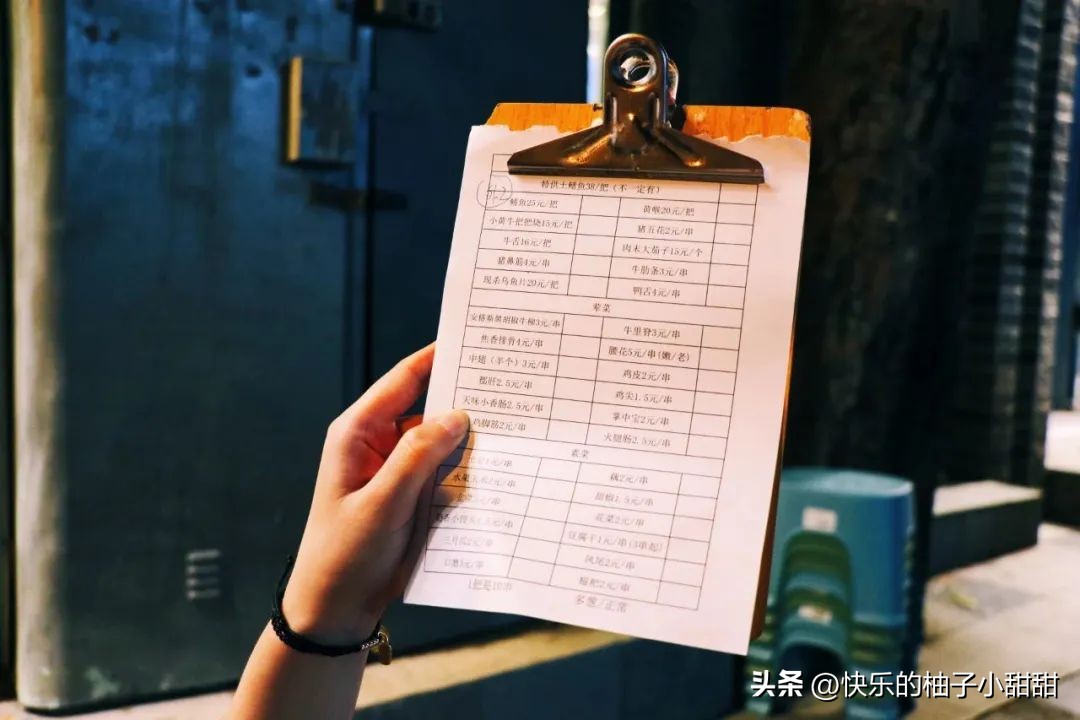 特供土鳝鱼38/把（不一定有）
鳝鱼25元/把 黄喉20元/把
小黄牛把把烧15元/把 猪五花2元/串
牛舌16元/把 肉末大茄子15元/个
猪鼻筋4元/串 牛肋条3元/串
现杀乌鱼片20元/把 鸭舌4元/串
荤菜
安格斯黑胡椒牛柳3元/串 牛里脊3元/串
焦香排骨4元/串 腰花5元/串(嫩/老)
中翅（半个）3元/串 鸡皮2元/串
郡肝2.5元/串 鸡尖1.5元/串
天味小香肠2.5元/串 掌中宝2元/串
鸡脚筋2元/串 火腿肠2.5元/串
素菜
1元/串 藕2元/串
水果玉米2元/串 甜椒1.5元/串
元/串 花菜2元/串
小馒头1.5元/串 豆腐干1元/串(3串起)
三月瓜2元/串 凤尾2元/串
口蘑3元/串 糍粑2元/串
1把是10串 多辣/正常
头条 @快乐的柚子小甜甜